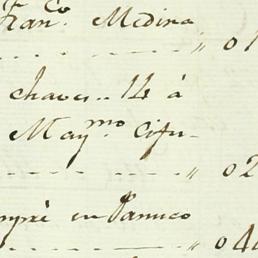 Fran.co Medina
" 01
chaves .. 14 á
May.mo Cifu-
" 02
mpré en Panuco
" 04